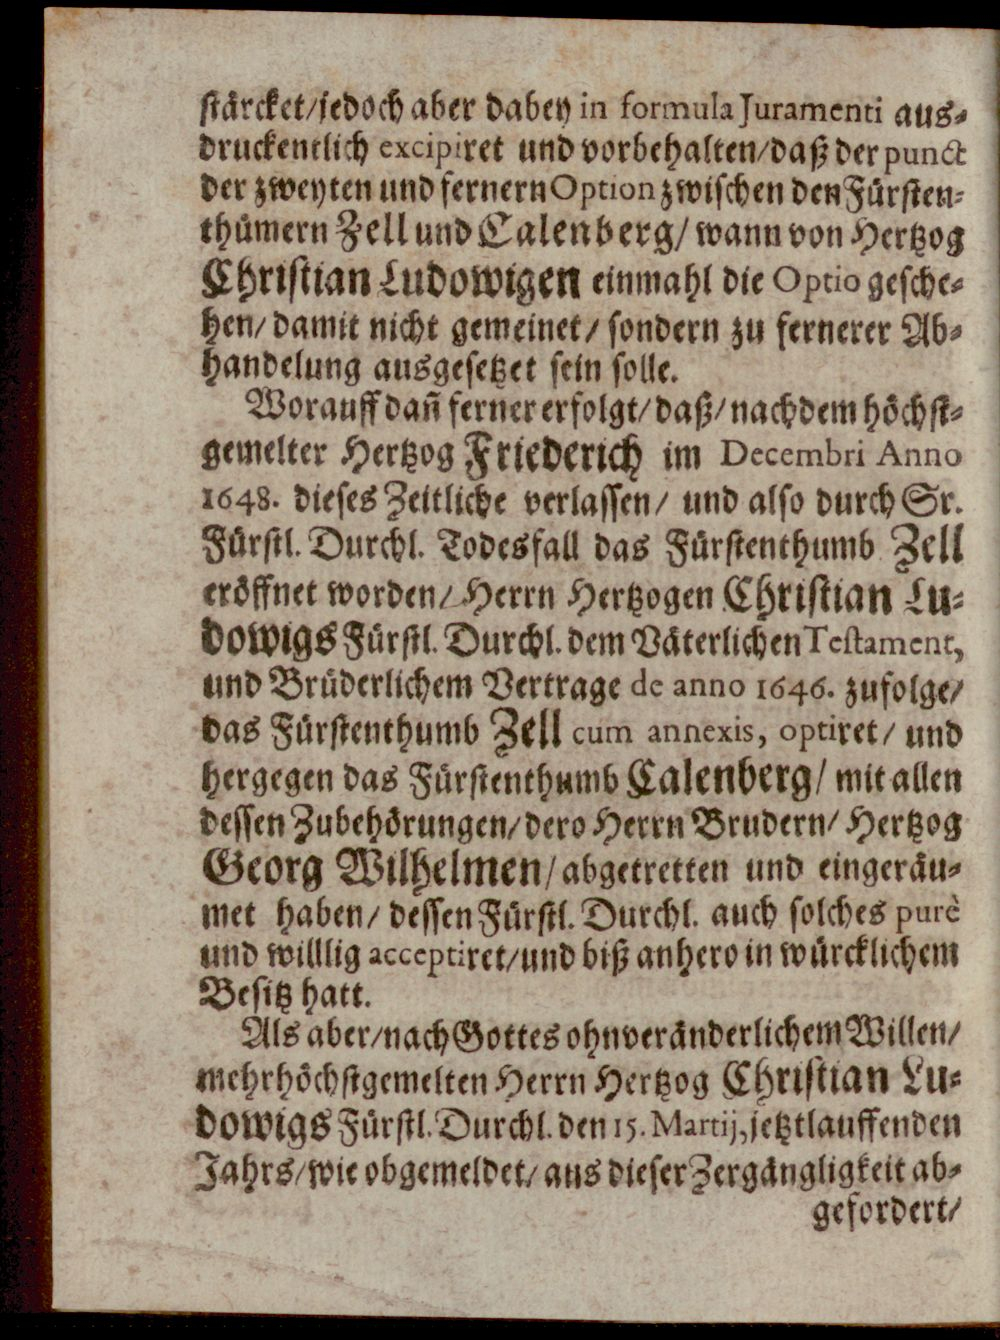 stärcket/jedoch aber dabey in formula Juramenti aus-
druckentlich excipiret und vorbehalten/daß der punct
der zweyten und fernern Option zwischen den Fürsten-
thümern Zell und Calenberg/ wann von Hertzog
Christian Ludowigen einmahl die Optio gesche-
hen/ damit nicht gemeinet/ sondern zu fernerer Ab-
handelung ausgesetzet sein solle.
Worauff dañ ferner erfolgt/ daß/ nachdem höchst-
gemelter Hertzog Friederich im Decembri Anno
1648. dieses Zeitliche verlassen/ und also durch Sr.
Fürstl. Durchl. Todesfall das Fürstenthumb Zell
eröffnet worden/ Herrn Hertzogen Christian Lu-
dowigs Fürstl. Durchl. dem Väterlichen Testament,
und Brüderlichem Vertrage de anno 1646. zufolge/
das Fürstenthumb Zell cum annexis, optiret/ und
hergegen das Fürstenthumb Calenberg/ mit allen
dessen Zubehörungen/ dero Herrn Brudern/ Hertzog
Georg Wilhelmen/ abgetretten und eingeräu-
met haben/ dessen Fürstl. Durchl. auch solches purè
und willlig acceptiret/und biß anhero in würcklichem
Besitz hatt.
Als aber/nach Gottes ohnveränderlichem Willen/
mehrhöchstgemelten Herrn Hertzog Christian Lu-
dowigs Fürstl. Durchl. den 15. Martij, jetztlauffenden
Jahrs/wie obgemeldet/ aus dieser Zergängligkeit ab-
gefordert/